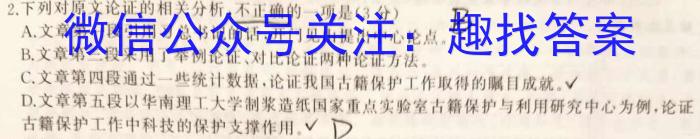 2.下列对原文论证的相关分析,不正确的一项是(3分) D
A.文章
微信公众号关注：趣找答案
B.文章第三段采用了举例论证、对比论证两种论证方法。
C.文章第四段通过一些统计数据,论证我国古籍保护工作取得的瞩目成就。✓
D.文章第五段以华南理工大学制浆造纸国家重点实验室古籍保护与利用研究中心为例,论证
古籍保护工作中科技的保护支撑作用。✓ D